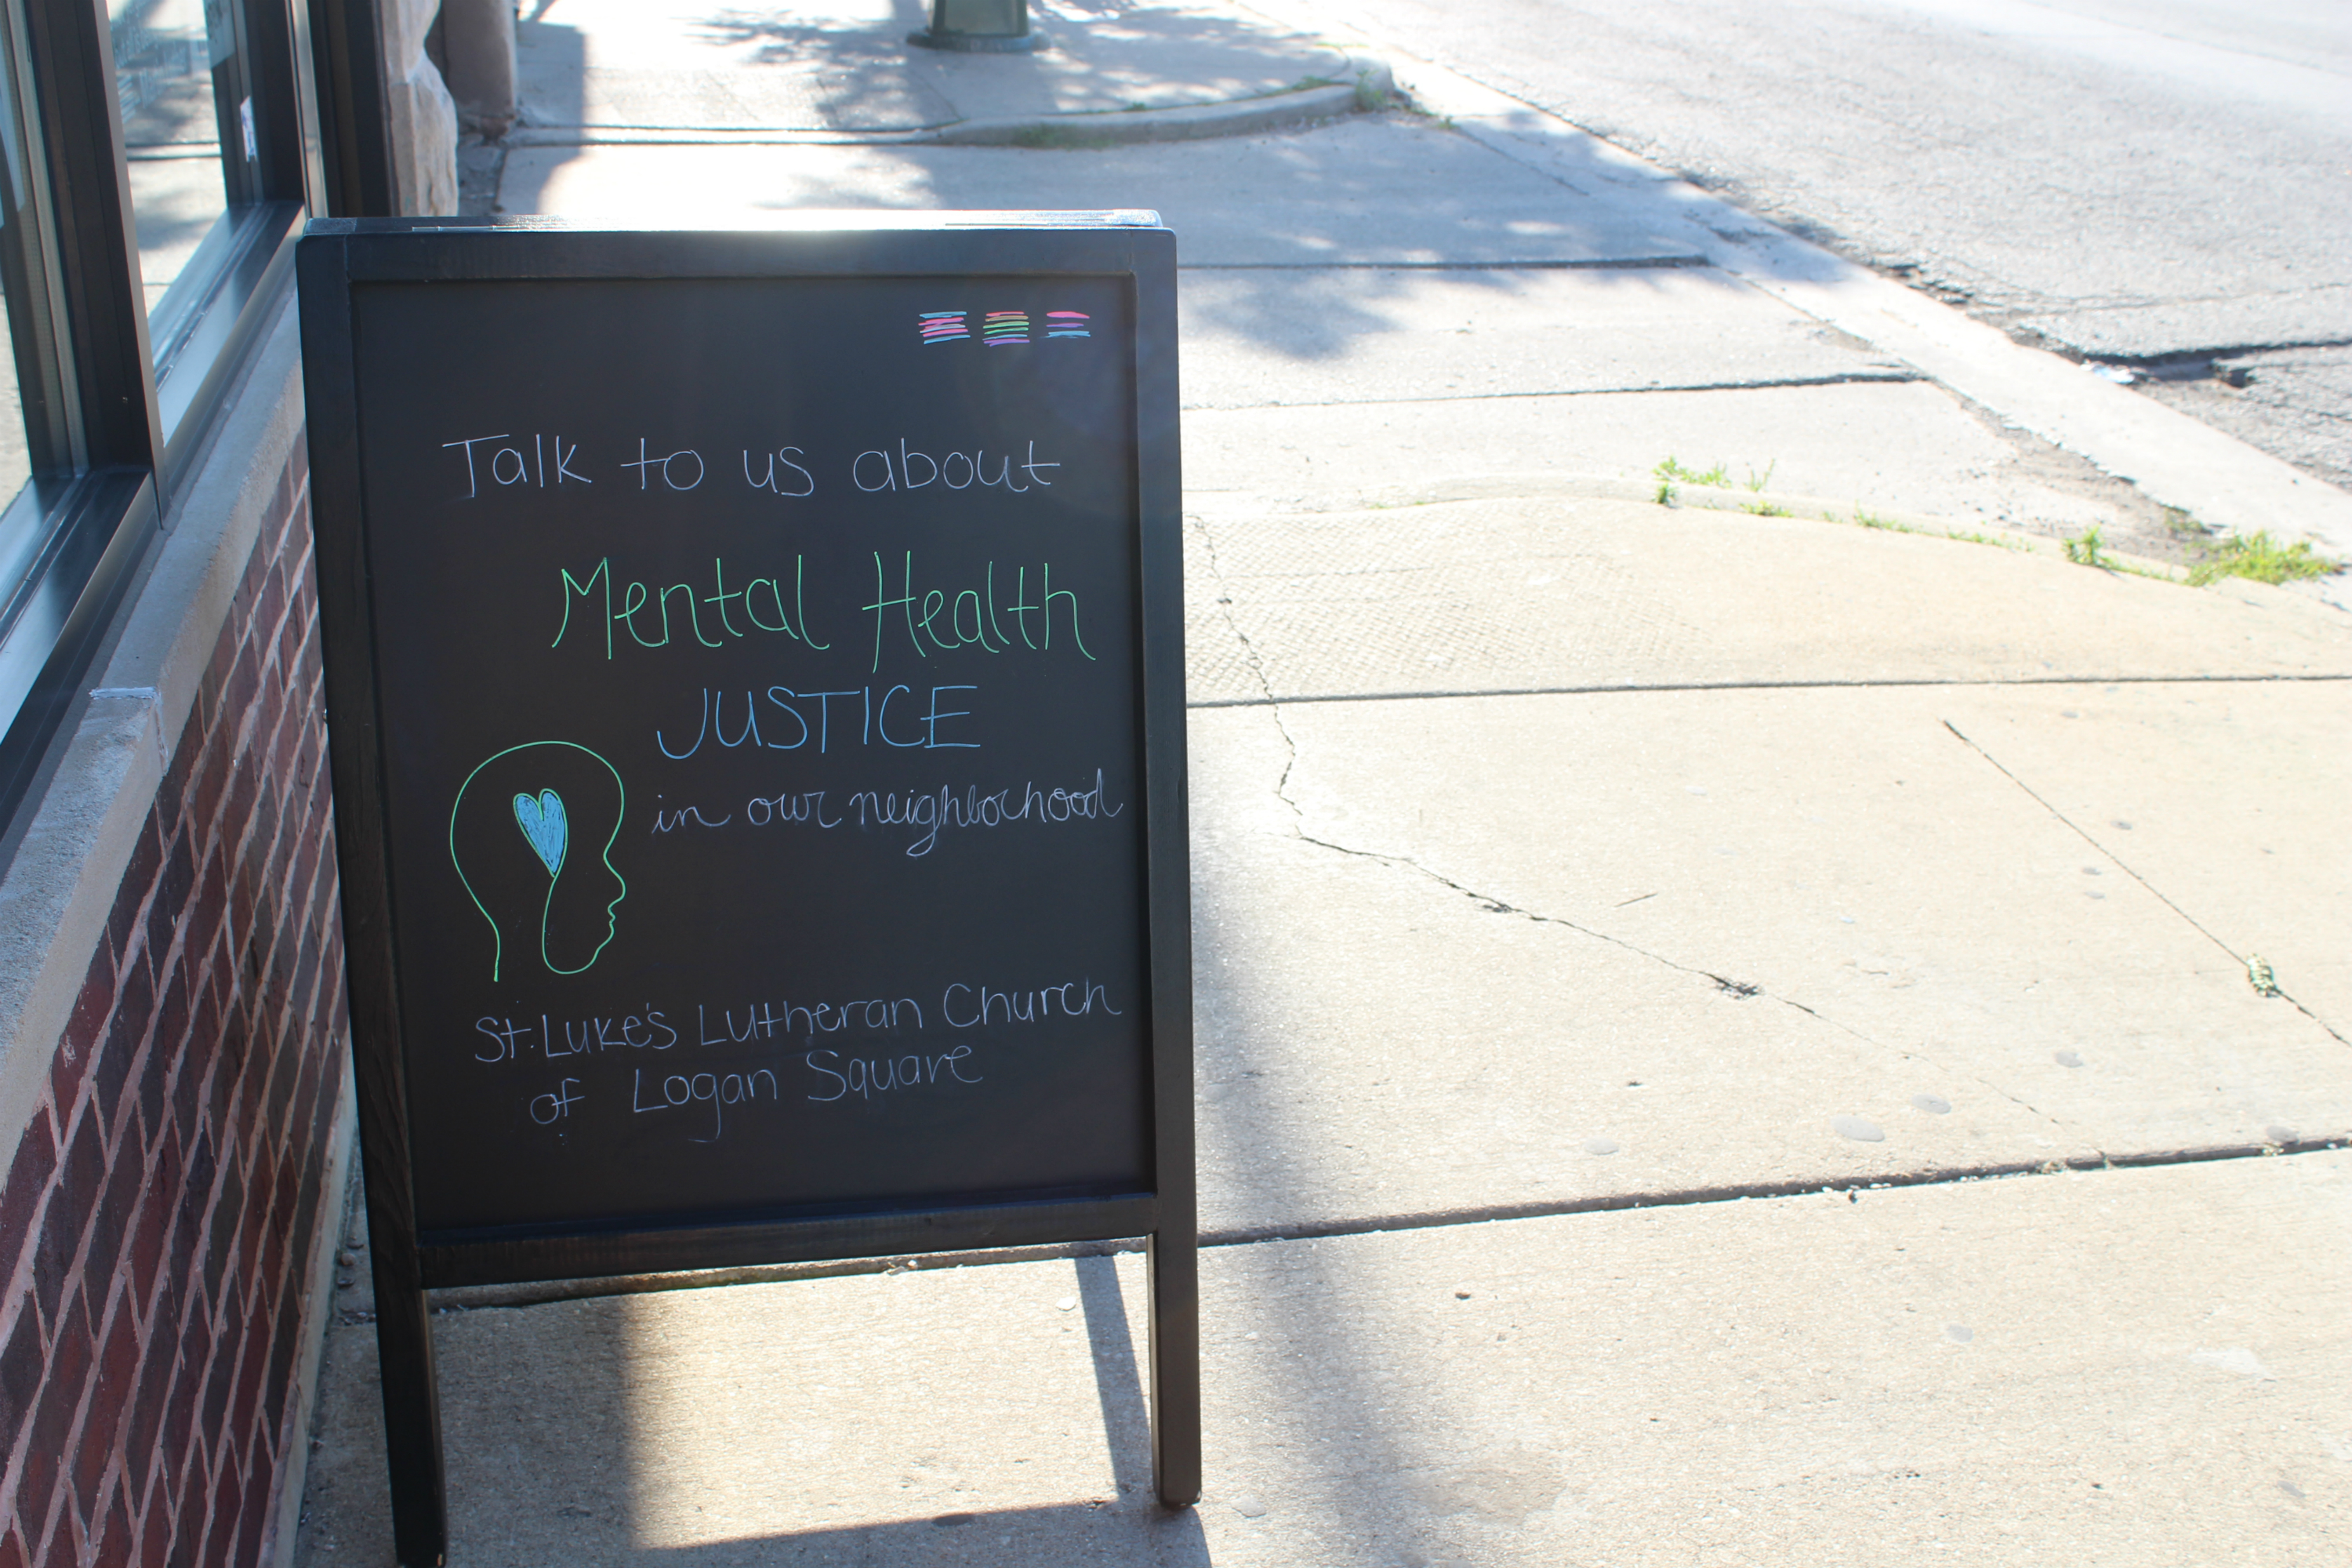 Talk to us about
Mental Health
JUSTICE
in our neighborhood
St. Luke's Lutheran Church
of Logan Square